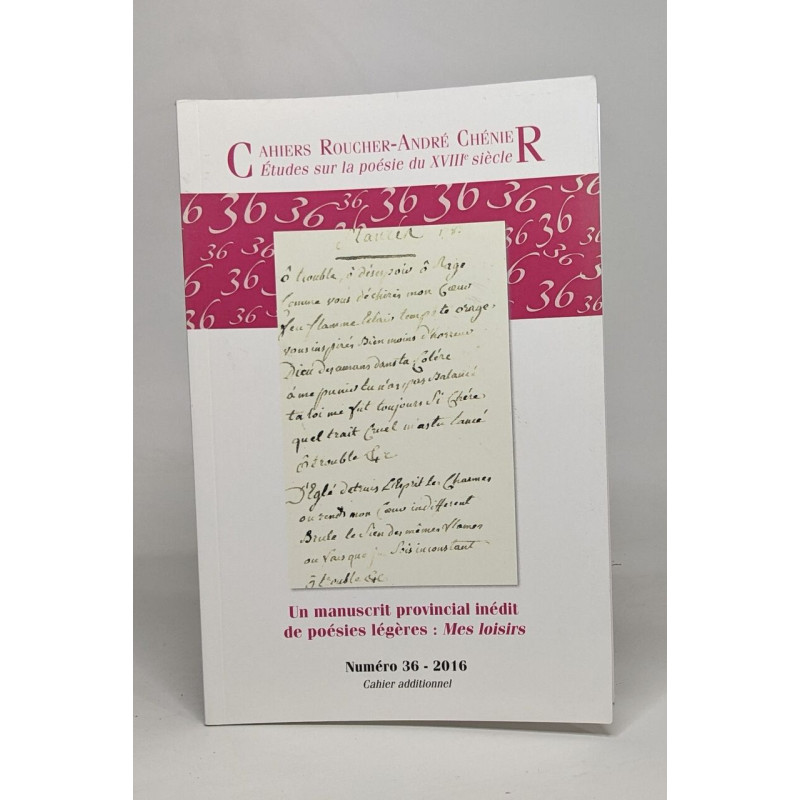 CAHIERS ROUCHER-ANDRÉ CHÉNIER
Études sur la poésie du XVIIIe siècle
36 36 36 36 36 36 36
ô trouble, ô désespoir ô Rage
Comme vous déchirés mon Cœur
feu flamme Eclairs tempête orage
vous inspirés Bien moins d'horreur
Dieu des amans dans ta Colére
à me punir tu n'as pas Balancé
ta loi me fut toujours si Chére
quel trait Cruel m'as tu lancé
ô trouble &c
D'Eglé detruis L'Esprit les Charmes
ou rends mon Cœur indifferent
Brule le Sien des mêmes flames
ou fais que je Sois inconstant
ô trouble &c
Un manuscrit provincial inédit
de poésies légères : Mes loisirs
Numéro 36 - 2016
Cahier additionnel